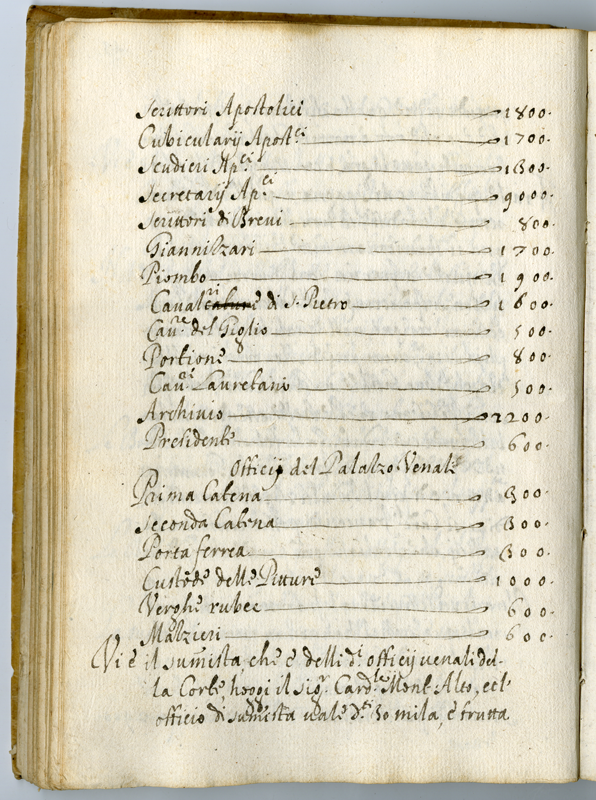 Scrittori Apostolici 1800.
Cubicularij Apost.ci 1700.
Scudieri Ap.ci 1300.
Secretarij Ap.ci 9000.
Scrittori di Breui 800.
Giannizzari 1700.
Piombo 1900.
Caual ri di S. Pietro 1600.
Cau.re del Giglio 500.
Portione 800.
Cau.ri Lauretani 500.
Archiuio 2200.
Presidente 600.
Officij del Palazzo Venali
Prima Catena 300.
Seconda Catena 300.
Porta ferrea 300.
Custode delle Pitture 1000.
Verghe rubee 600.
Mazzieri 600.
Vi è il sumista, che è delli d.i officij uenali del-
la Corte, hoggi il Sig.r Card.le Mont'Alto, et l'
officio di sumista uale d.ti 30 mila, è frutta